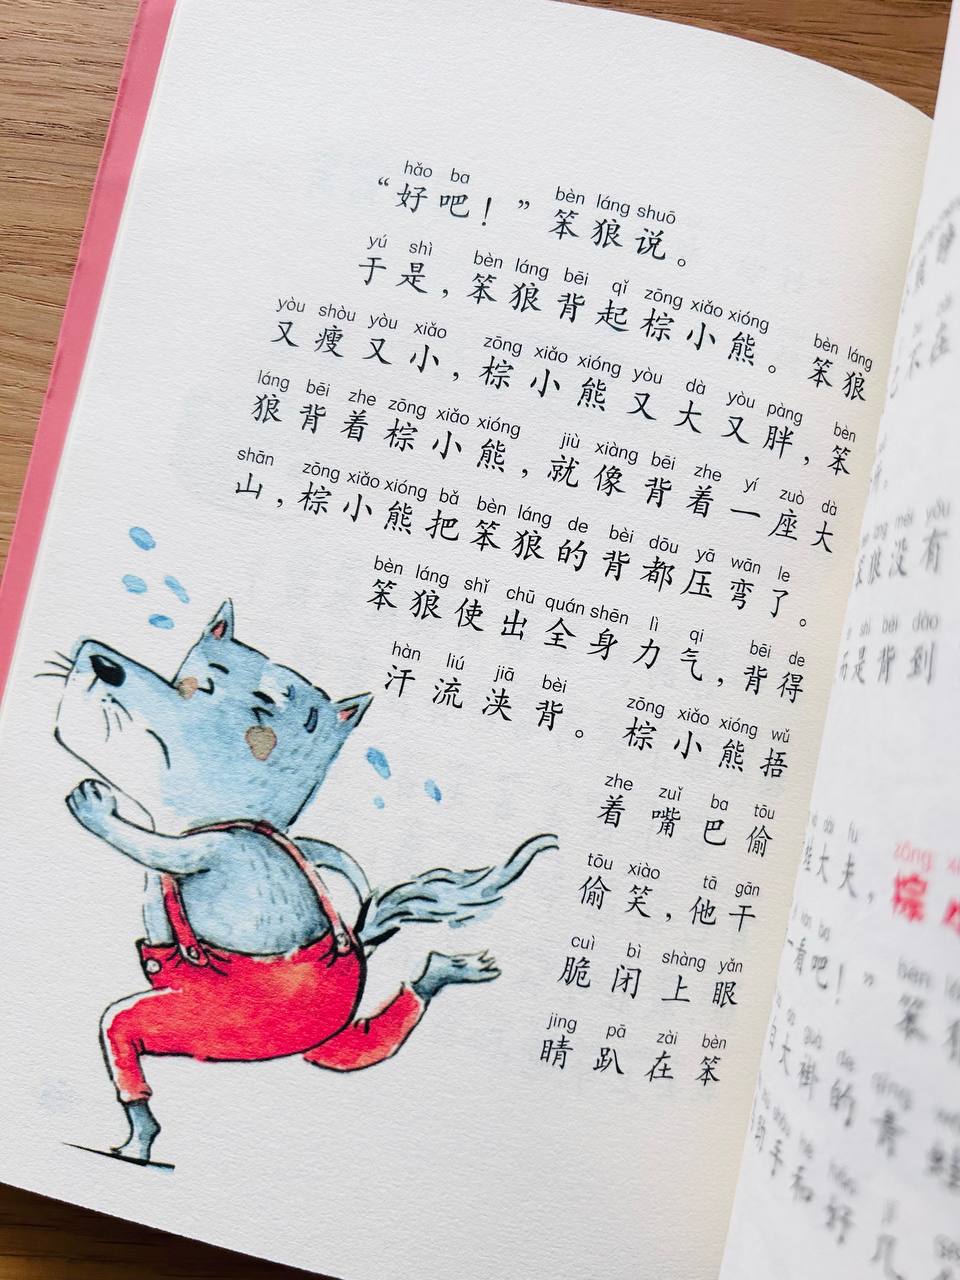 hǎo ba bèn láng shuō
“好吧！”笨狼说。
yú shì bèn láng bēi qǐ zōng xiǎo xióng bèn láng
于是，笨狼背起棕小熊。笨狼
yòu shòu yòu xiǎo zōng xiǎo xióng yòu dà yòu pàng bèn
又瘦又小，棕小熊又大又胖，笨
láng bēi zhe zōng xiǎo xióng jiù xiàng bēi zhe yí zuò dà
狼背着棕小熊，就像背着一座大
shān zōng xiǎo xióng bǎ bèn láng de bèi dōu yā wān le
山，棕小熊把笨狼的背都压弯了。
bèn láng shǐ chū quán shēn lì qi bēi de
笨狼使出全身力气，背得
hàn liú jiā bèi zōng xiǎo xióng wǔ
汗流浃背。棕小熊捂
zhe zuǐ ba tōu
着嘴巴偷
tōu xiào tā gān
偷笑，他干
cuì bì shàng yǎn
脆闭上眼
jing pā zài bèn
睛趴在笨
不在
méi yǒu
狼没有
shì bèi dào
是背到
fu
大夫，
zōng
棕
ba
看吧！”笨
de
大褂的青
助手和好几